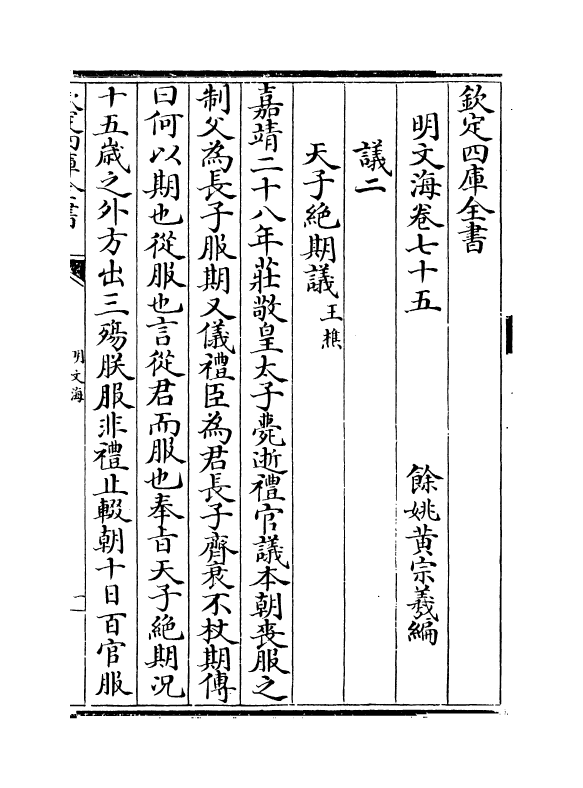 欽定四庫全書
明文海卷七十五
餘姚黄宗羲編
議二
天子絶期議王樵
嘉靖二十八年莊敬皇太子薨逝禮官議本朝喪服之
制父為長子服期又儀禮臣為君長子齊衰不杖期傳
曰何以期也從服也言從君而服也奉㫖天子絶期况
十五歳之外方出三殤朕服非禮止輟朝十日百官服
欽定四庫全書
明文海
一